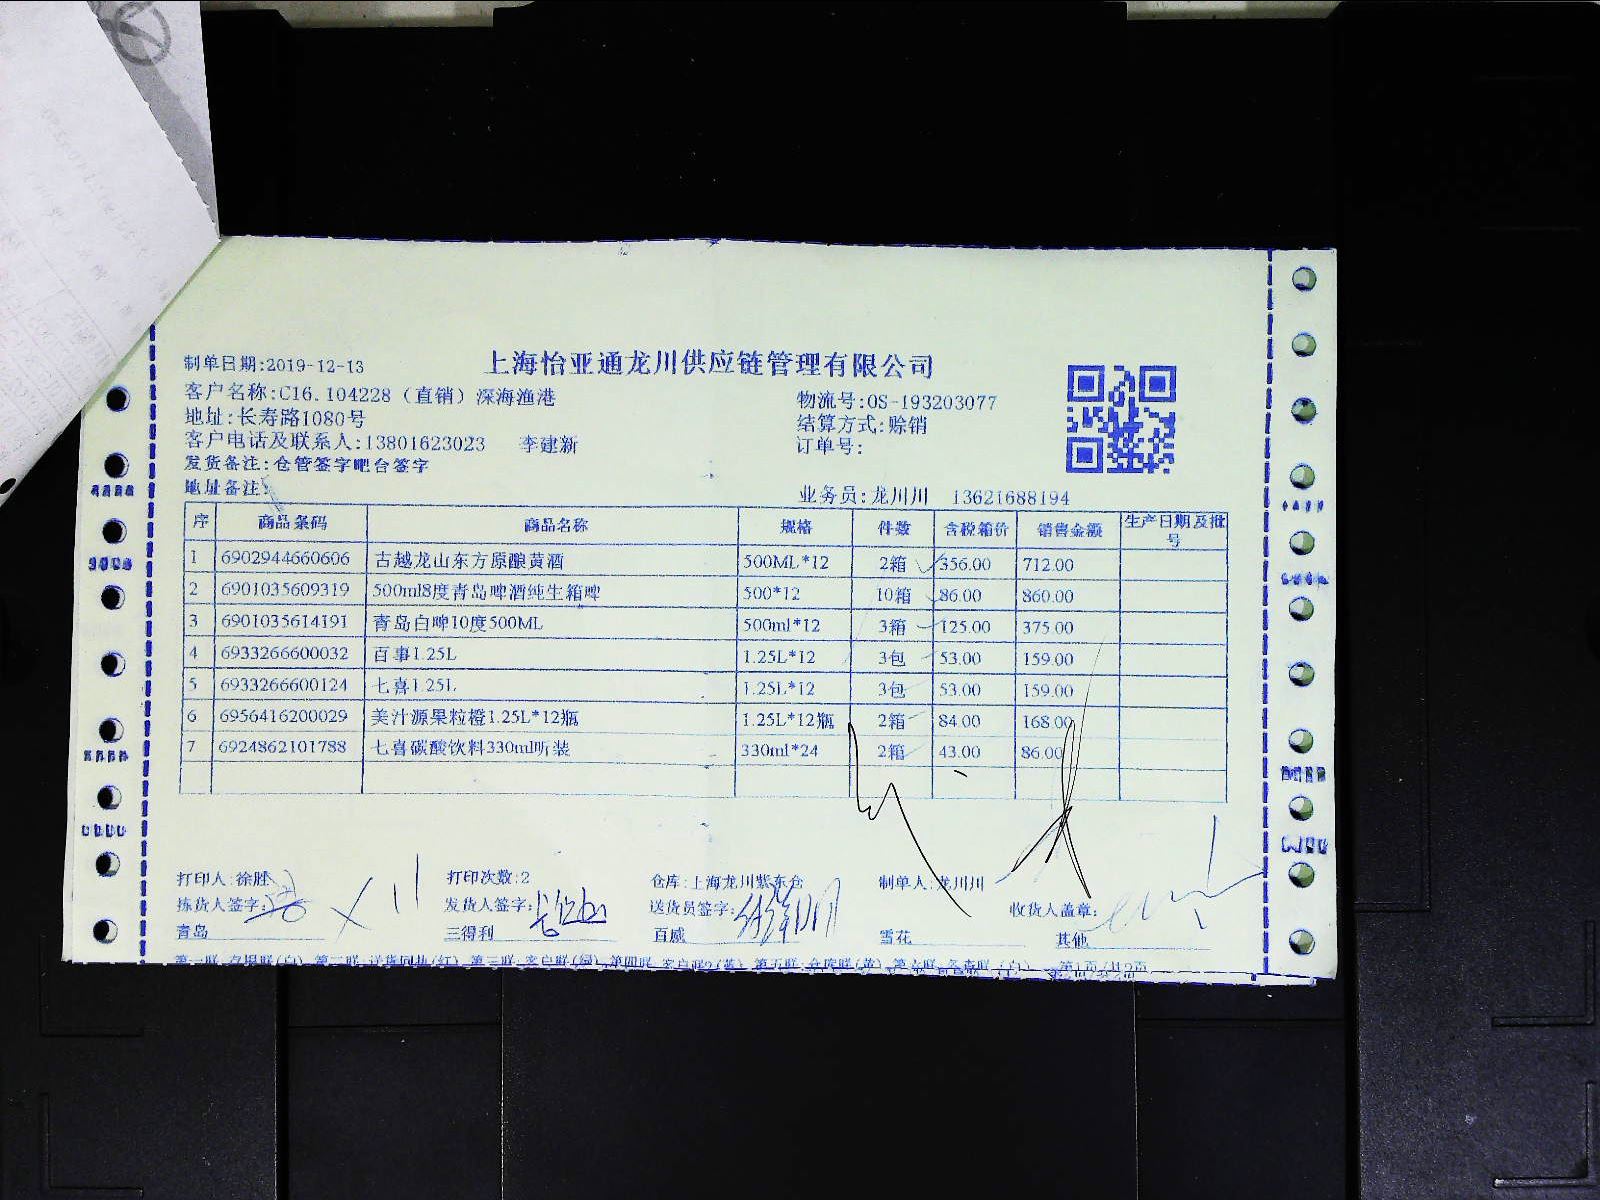 上海怡亚通龙川供应链管理有限公司
制单日期:2019-12-13
客户名称:C16.104228（直销）深海渔港
物流号:OS-193203077
地址:长寿路1080号
结算方式:赊销
客户电话及联系人:13801623023 李建新
订单号:
发货备注:仓管签字吧台签字
地址备注:
业务员:龙川川 13621688194
序 商品条码 商品名称 规格 件数 含税箱价 销售金额 生产日期及批号
1 6902944660606 古越龙山东方原酿黄酒 500ML*12 2箱 356.00 712.00
2 6901035609319 500ml8度青岛啤酒纯生箱啤 500*12 10箱 86.00 860.00
3 6901035614191 青岛白啤10度500ML 500ml*12 3箱 125.00 375.00
4 6933266600032 百事1.25L 1.25L*12 3包 53.00 159.00
5 6933266600124 七喜1.25L 1.25L*12 3包 53.00 159.00
6 6956416200029 美汁源果粒橙1.25L*12瓶 1.25L*12瓶 2箱 84.00 168.00
7 6924862101788 七喜碳酸饮料330ml听装 330ml*24 2箱 43.00 86.00
打印人:徐胜 打印次数:2 仓库:上海龙川紫东仓 制单人:龙川川
拣货人签字: 发货人签字: 送货员签字: 收货人盖章:
青岛 三得利 百威 雪花 其他